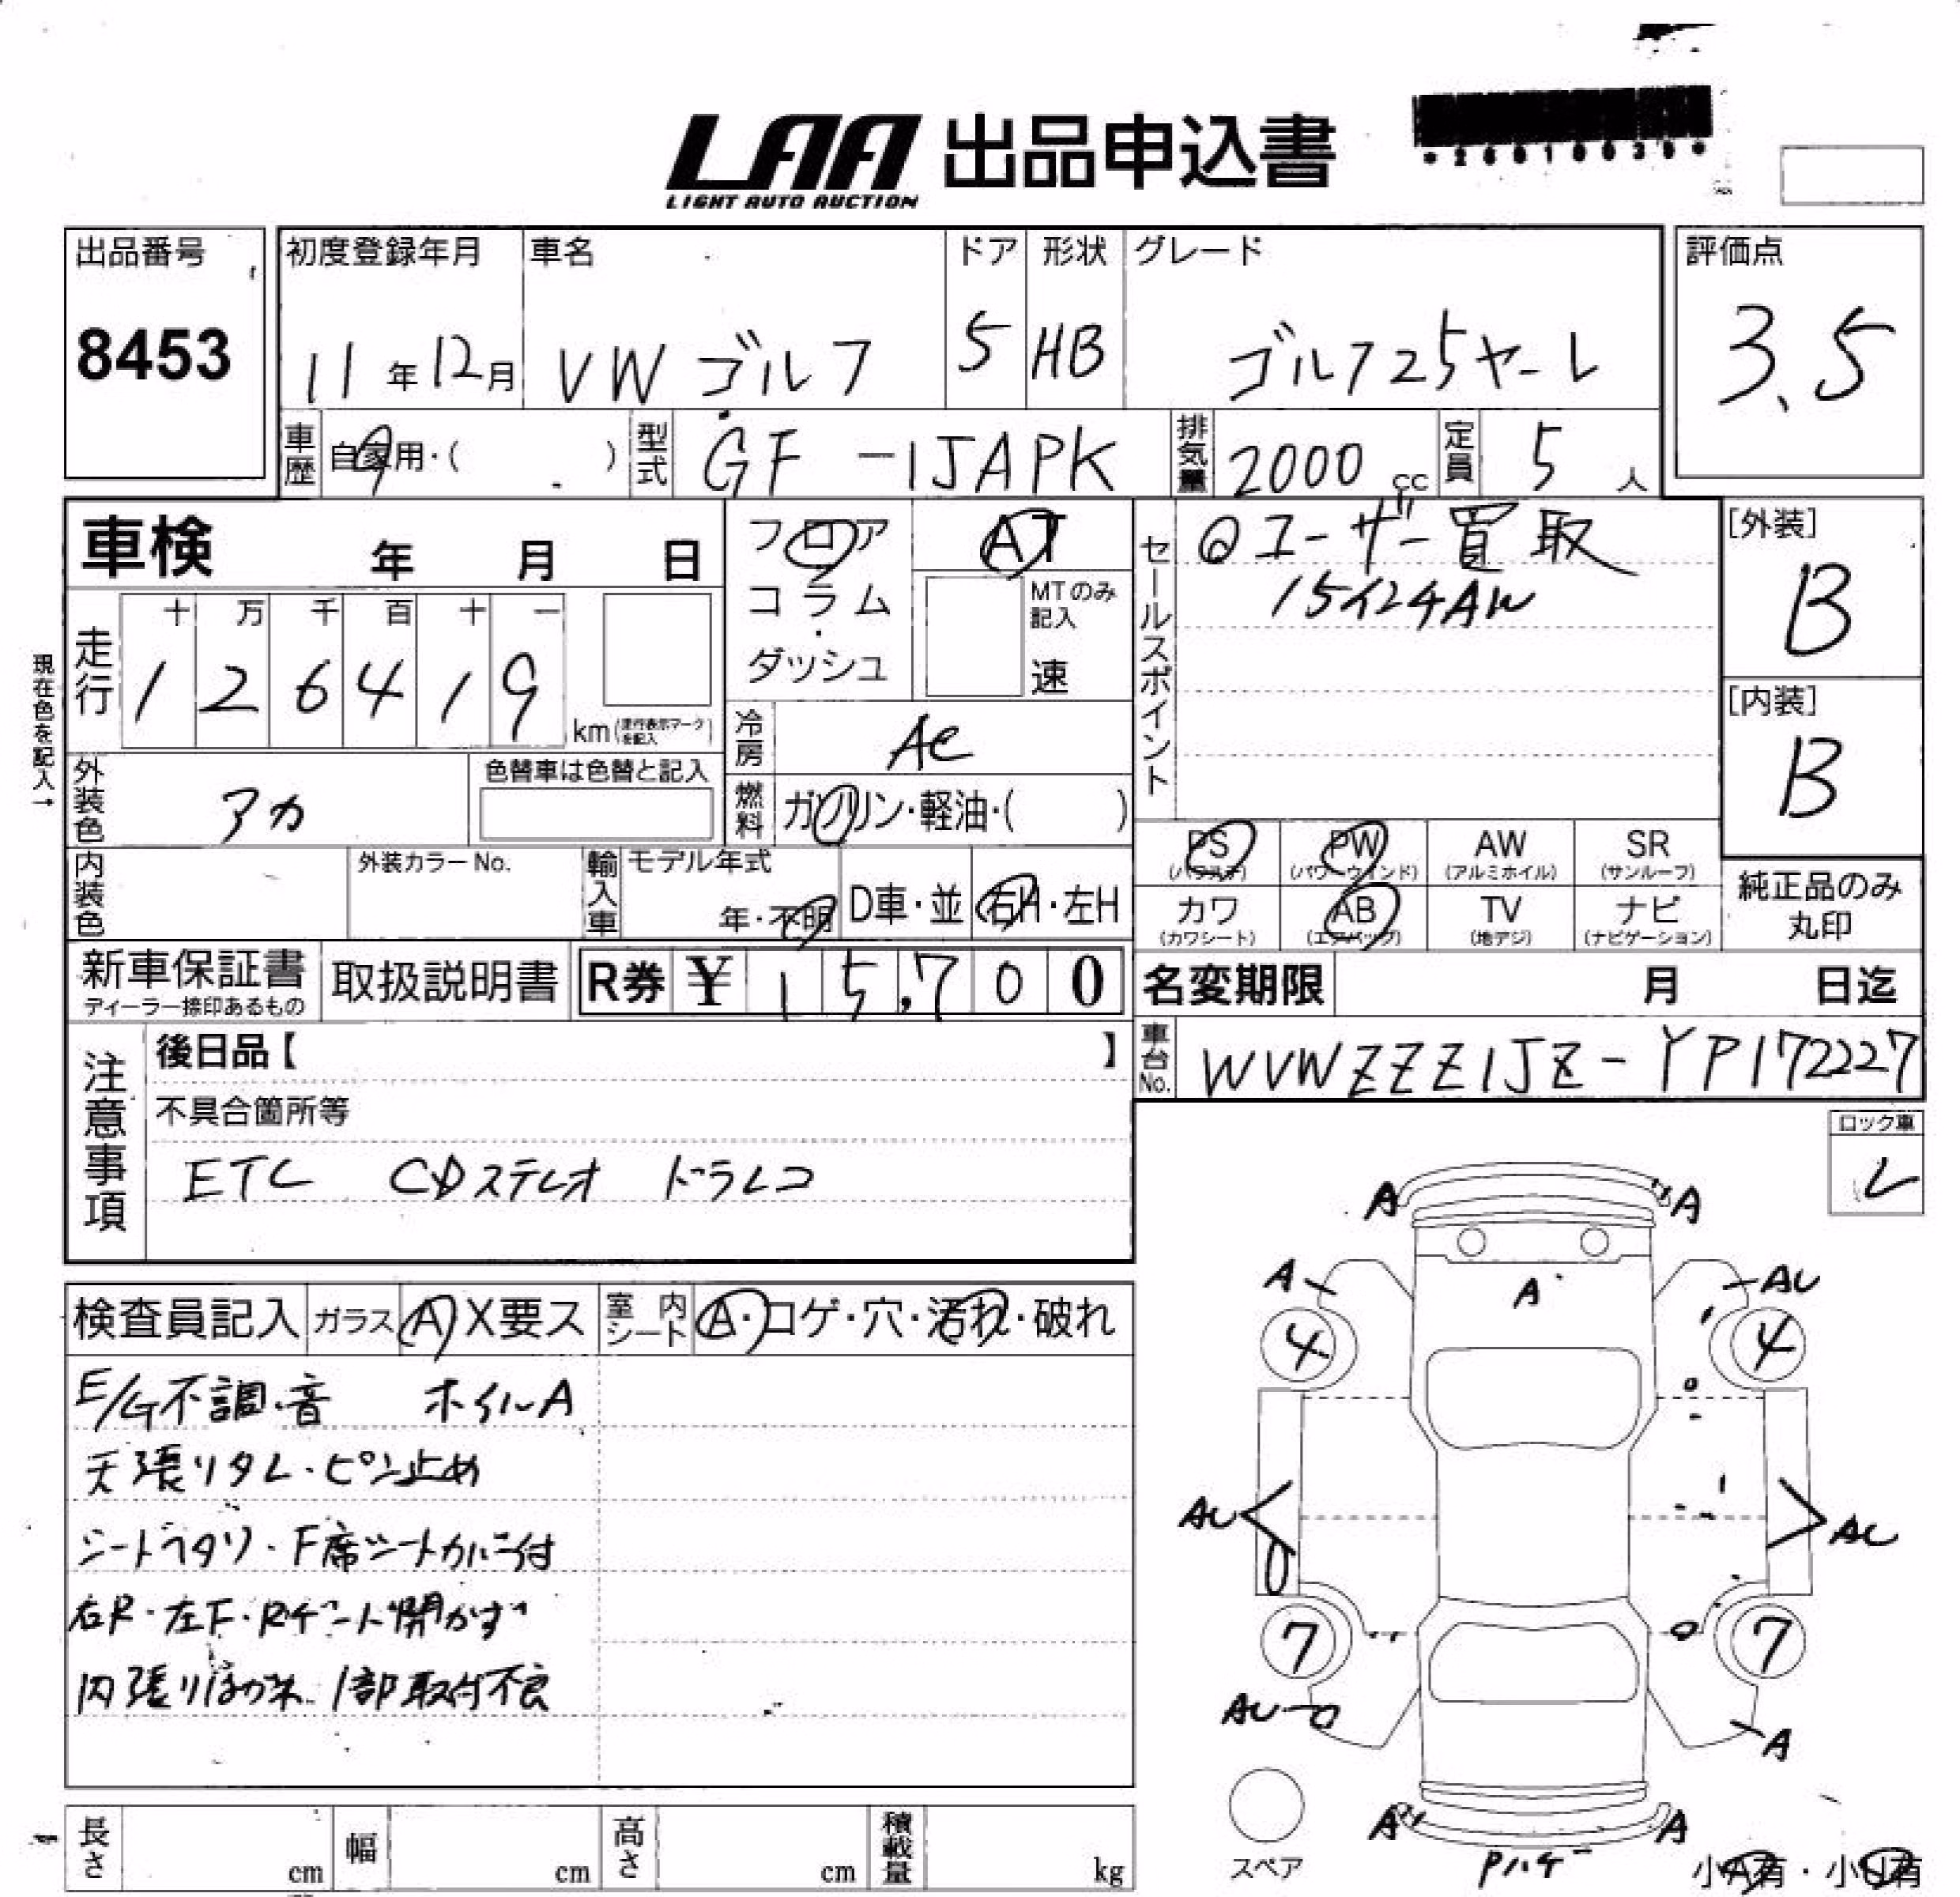 LAA 出品申込書
LIGHT AUTO AUCTION
出品番号
8453
初度登録年月
11年12月
車名
VW ゴルフ
ドア
5
形状
HB
グレード
ゴルフ25ヤーレ
評価点
3.5
車歴 自家用・( )
型式 GF-1JAPK
排気量 2000 cc
定員 5 人
車検 年 月 日
フロア
コラム
・
ダッシュ
AT
MTのみ記入
速
セールスポイント
ユーザー買取
15インチAW
[外装]
B
[内装]
B
現在色を記入→
走行
十 万 千 百 十 一
1 2 6 4 1 9
km(走行表示マークを記入)
冷房 AC
外装色 アカ
色替車は色替と記入
燃料 ガソリン・軽油・( )
PS (パワステ)
PW (パワーウインド)
AW (アルミホイル)
SR (サンルーフ)
カワ (カワシート)
AB (エアバッグ)
TV (地デジ)
ナビ (ナビゲーション)
純正品のみ丸印
内装色
外装カラーNo.
輸入車
モデル年式
年・不明
D車・並
右H・左H
新車保証書
ディーラー捺印あるもの
取扱説明書
R券 ¥ 15,700
名変期限 月 日迄
車台No. WVWZZZ1JZ-YP172227
注意事項
後日品【 】
不具合箇所等
ETC CDステレオ ドラレコ
ロック車
レ
検査員記入 ガラス A X要ス
室内シート A・コゲ・穴・汚れ・破れ
E/G不調.音 ホイルA
天張リタレ・ピン止め
シートヘタリ・F席シートカバー付
右R・左F・Rゲート開かず
内張りはがれ 1部取付不良
A A
A AU
A
4 4
AU AU
7 7
AU A
A A
Pハゲ
スペア
小A有・小U有
長さ cm
幅 cm
高さ cm
積載量 kg